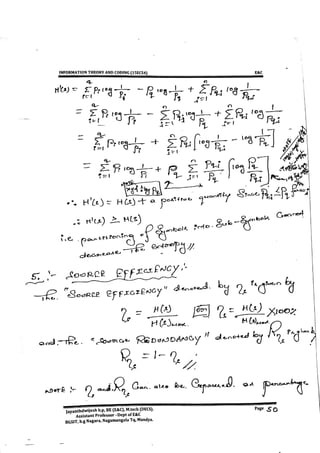 INFORMATION THEORY AND CODING (15EC54) E&C
H'(s) = Σ Pi log 1/Pi - Pq log 1/Pq + Σ Pqj log 1/Pqj
= Σ Pi log 1/Pi - Σ Pqj log 1/Pq + Σ Pqj log 1/Pqj
= Σ Pi log 1/Pi + Σ Pqj [log 1/Pqj - log 1/Pq]
= Σ Pi log 1/Pi + Pq Σ Pqj/Pq [log Pq/Pqj]
∴ H'(s) = H(s) + a positive quantity Since
∴ H'(s) ≥ H(s)
i.e partitioning of Symbols into Sub-Symbols Cannot
decrease the entropy //.
5. :- SOURCE EFFICIENCY :-
The "SOURCE EFFICIENCY" denoted by η is given by
η = H(s)/H(s)max. (or) η = H(s)/H(s)max X100%
and the "Source REDUNDANCY" denoted by Rη is given by
Rη = 1 - η //.
NOTE :- η and Rη Can also be Expressed as percentage
Jayanthdwijesh h p, BE (E&C), M.tech (DECS). Page 50
Assistant Professor – Dept of E&C
BGSIT, b g Nagara, Nagamangala Tq, Mandya.